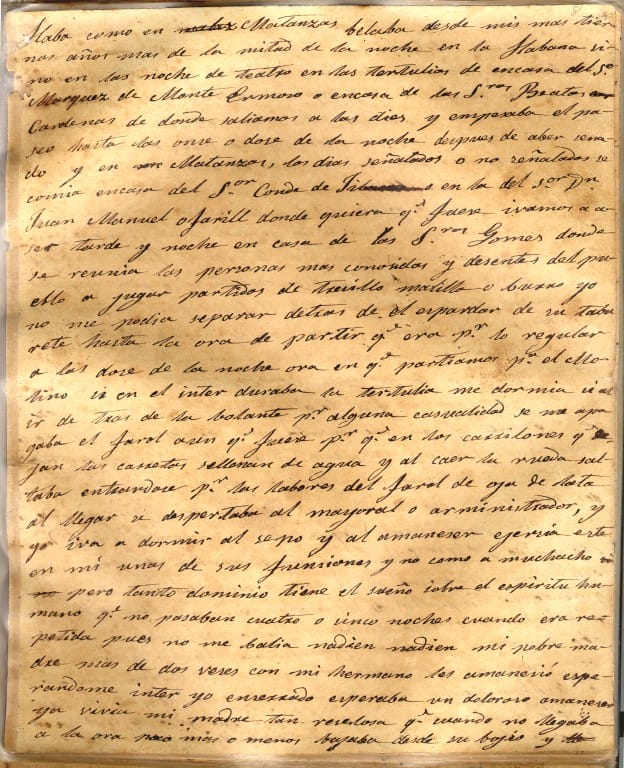 staba como en Matanzas belaba desde mis mas tier
nos años mas de la mitad de la noche en la Habana si
no en las noche de teatro en las tertulias de encasa del S.or
Marquez de Monte Ermoso o encasa de las S.ras Beatas
Cardenas de donde saliamos a las dies y empesaba el pa
seo hasta las onse o dose de la noche despues de aber sena
do y en Matanzas, los dias señalados o no señalados se
comia encasa del S.or Conde de o en la del S.or Dn.
Juan Manuel ofarill donde quiera q.e fuese ivamos a a
ser tarde y noche en casa de las S.ras Gomes donde
se reunia las personas mas conosidas y desentes del pu
eblo a jugar partidos de tresillo matillo o burro yo
no me podia separar detras de el espardar de su tabu
rete hasta la ora de partir q.e era p.r lo regular
a las dose de la noche ora en q.e partiamos p.a el Mo
lino si en el inter duraba la tertulia me dormia si al
ir de tras de la bolante p.r alguna casualidad se me apa
gaba el farol aun q.e fuese p.r q.e en los carrilones q.e de
jan las carretas sellenan de agua y al caer la rueda sal
taba entrandose p.r las labores del farol de oja de lata
al llegar se despertaba al mayoral o arministrador, y
yo iva a dormir al sepo y al amaneser ejersia este
en mi unas de sus funsiones y no como a muchacho
pero tanto dominio tiene el sueño sobre el espiritu hu
mano q.e no pasaban cuatro o sinco noches cuando era re
petida pues no me balia nadien nadien mi pobre ma
dre mas de dos veses con mi hermano les amanesió espe
randome inter yo enserrado esperaba un doloroso amaneser
ya vivia mi madre tan reselosa q.e cuando no llegaba
a la ora mas o menos bajaba desde su bojio y